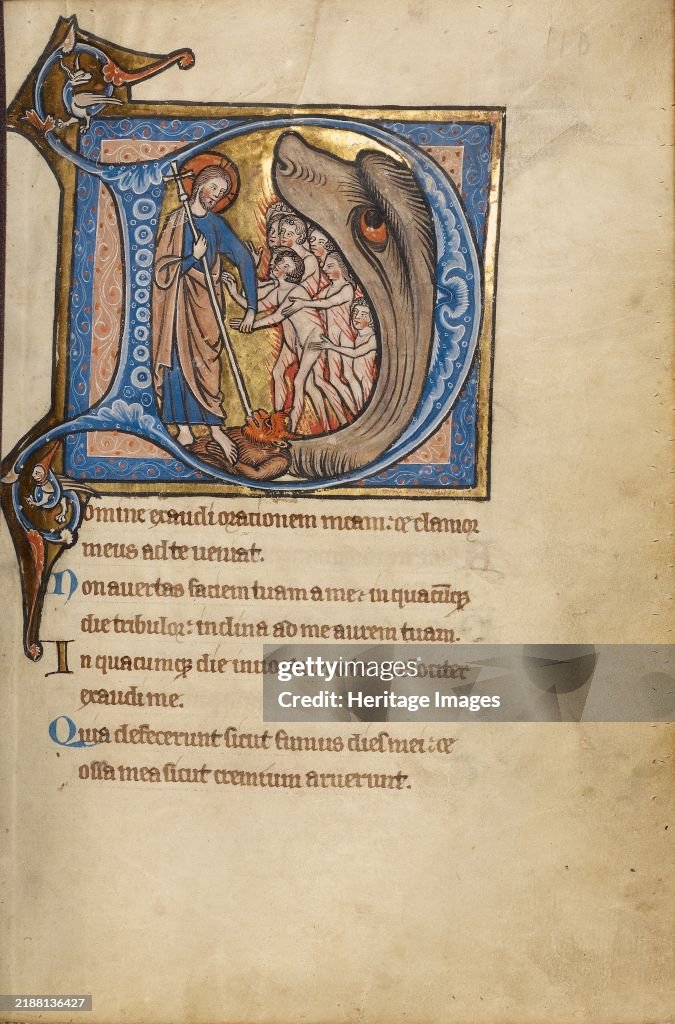 Domine exaudi orationem meam: et clamor
meus ad te ueniat.
Non auertas faciem tuam a me: in quacūqꝫ
die tribulor: inclina ad me aurem tuam.
In quacumqꝫ die
exaudi me.
gettyimages®
Credit: Heritage Images
Quia defecerunt sicut fumus dies mei: et
ossa mea sicut cremium aruerunt.
2188136427